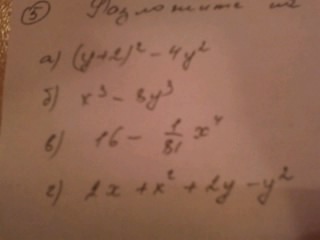 ⑤ Разложите на
а) (y+2)² − 4y²
б) x³ − 8y³
в) 16 − 1/81 x⁴
г) 2x + x² + 2y − y²